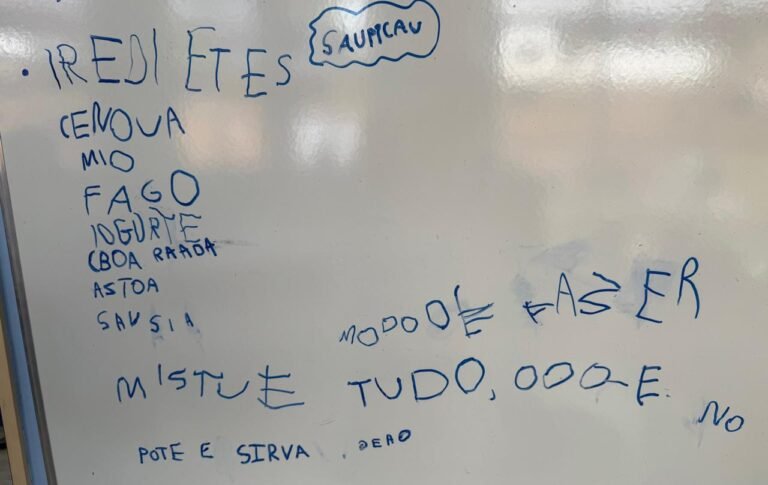 SAUPICAU
IREDIETES
CENOUA
MIO
FAGO
IOGURTE
CBOA RAADA
ASTOA
SAUSIA
MODO DE FASER
MISTUE TUDO, OOO-E. NO
POTE E SIRVA.